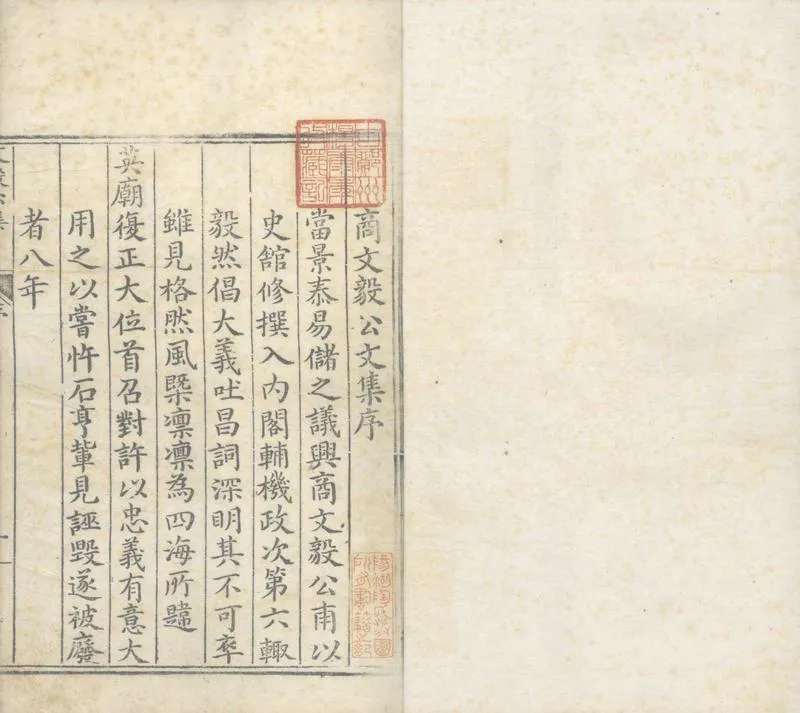 商文毅公文集序
當景泰易儲之議興商文毅公甫以
史館修撰入內閣輔機政次第六輙
毅然倡大義吐昌詞深明其不可率
雖見格然風槩凛凛為四海所韙
英廟復正大位首召對許以忠義有意大
用之以嘗忤石亨軰見誣毀遂被廢
者八年